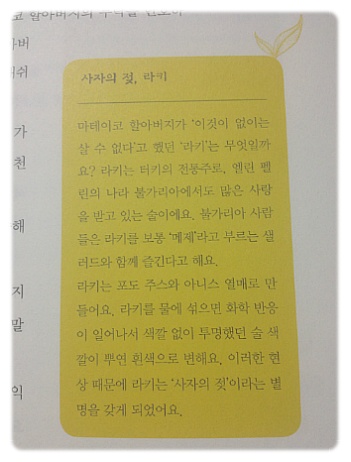 고 할아버지의
아버
사자의 젖, 라키
마테이코 할아버지가 '이것이 없이는
살 수 없다'고 했던 '라키'는 무엇일까
요? 라키는 터키의 전통주로, 엘린 펠
린의 나라 불가리아에서도 많은 사랑
을 받고 있는 술이에요. 불가리아 사람
들은 라키를 보통 '메제'라고 부르는 샐
러드와 함께 즐긴다고 해요.
라키는 포도 주스와 아니스 열매로 만
들어요. 라키를 물에 섞으면 화학 반응
이 일어나서 색깔 없이 투명했던 술 색
깔이 뿌연 흰색으로 변해요. 이러한 현
상 때문에 라키는 '사자의 젖'이라는 별
명을 갖게 되었어요.
가
천
해
지
말
익